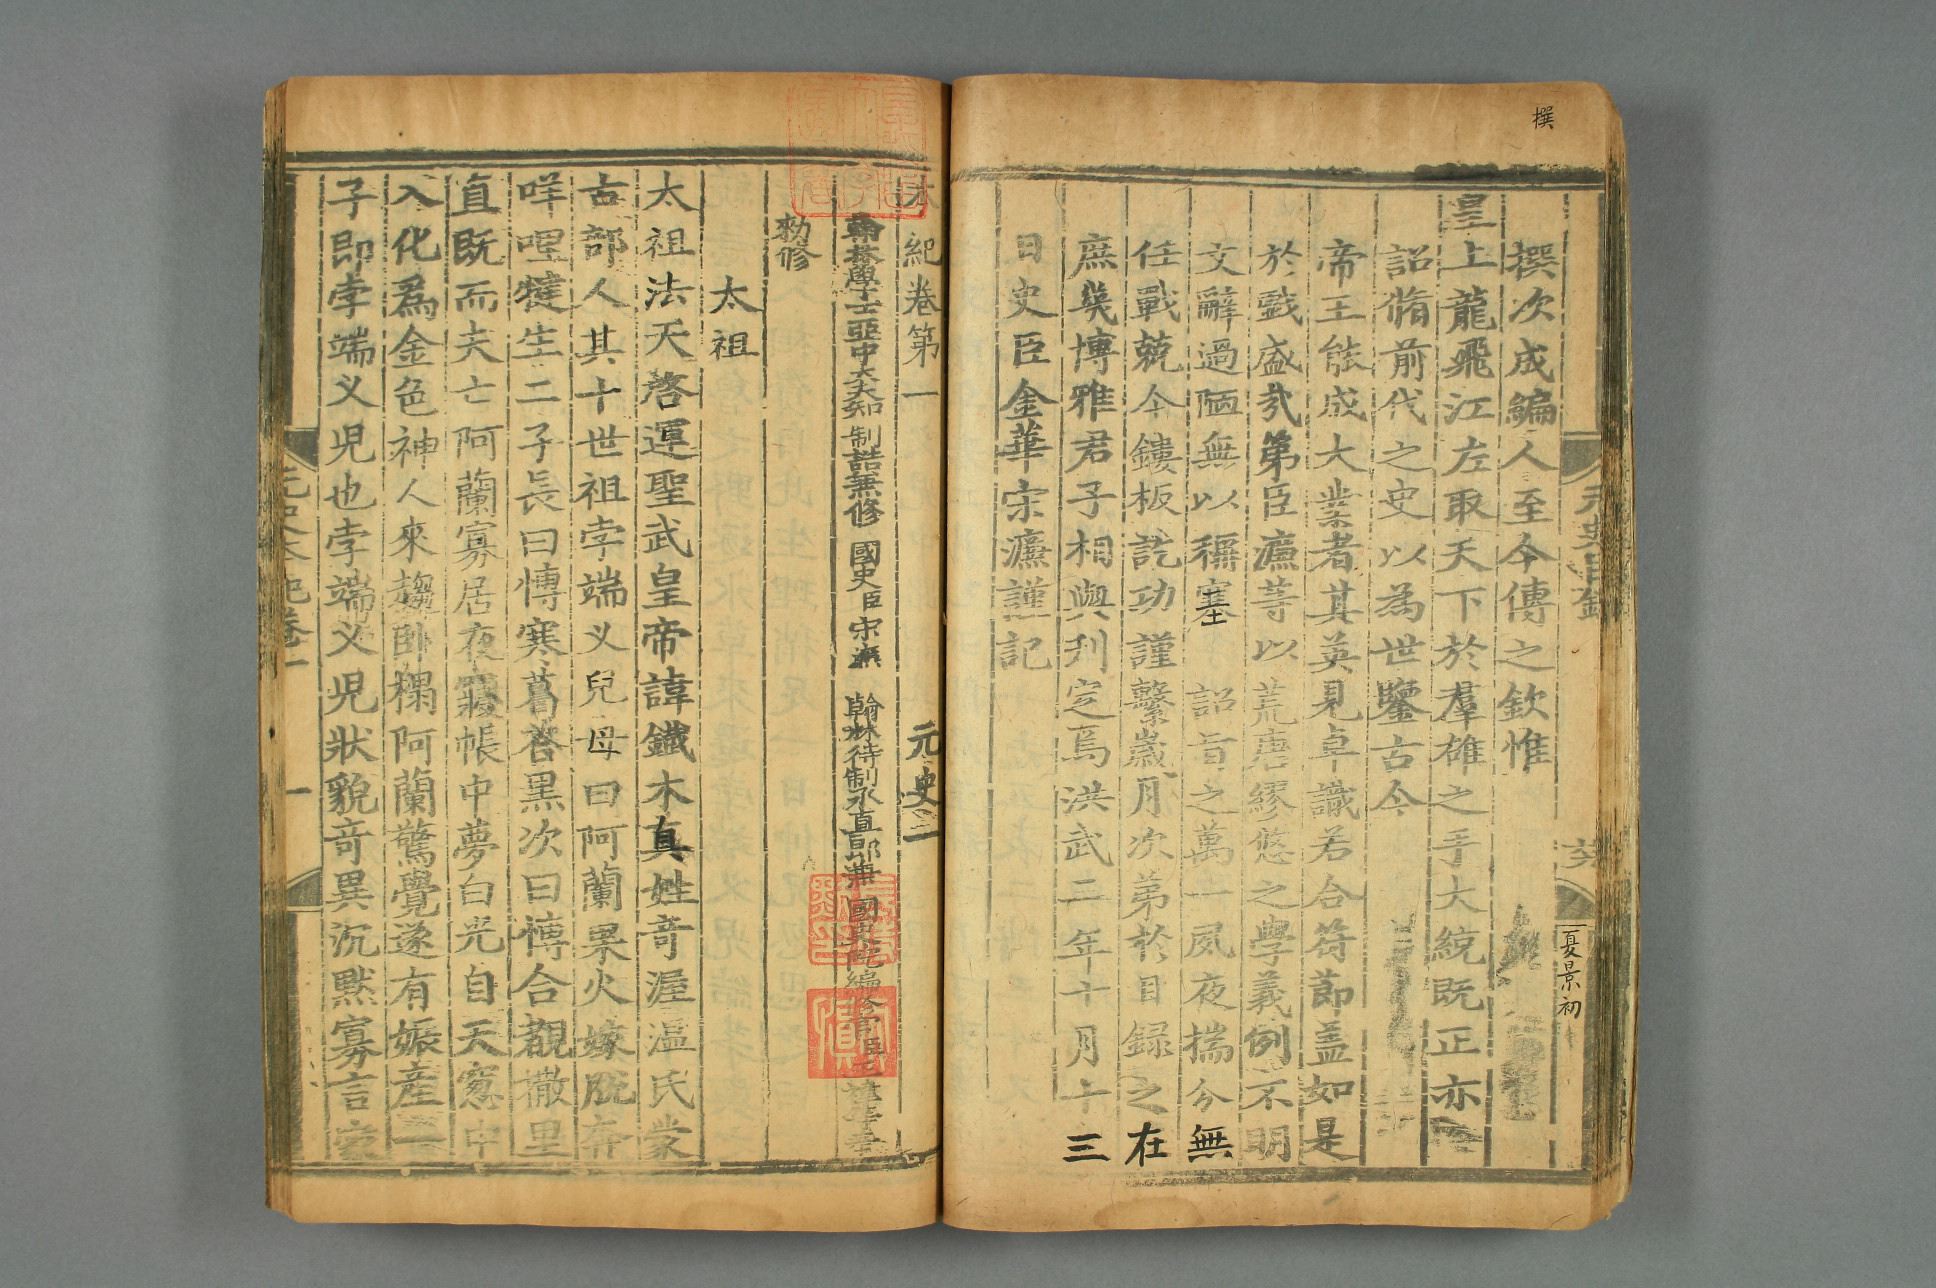 撰
撰次成編人至今傳之欽惟
皇上龍飛江左取天下於羣雄之手大統既正亦
詔脩前代之史以為世鑒古今
帝王能成大業者其英見卓識若合符節盖如是
於戱盛㢤第臣濂䓁以荒唐繆悠之學義例不明
文辭過陋無以稱塞 詔旨之萬一夙夜揣兮無
任戰兢今鏤板訖功謹繫歲月次弟於目録之在
庶㡬博雅君子相與刋定焉洪武二年十月十三
日史臣金華宋濂謹記
元史目錄
六
夏景初
本紀卷第一 元史一
翰林學士亞中大夫知 制誥兼修 國史臣宋濂 翰林待制承直郎兼 國史院編修官臣王禕等奉
勑修
太祖
太祖法天啓運聖武皇帝諱鐵木真姓竒渥溫氏蒙
古部人其十世祖孛端义兒母曰阿蘭果火嫁脱奔
咩哩犍生二子長曰愽寒葛荅黑次曰愽合覩撒里
直既而夫亡阿蘭寡居夜寢帳中夢白光自天窓中
入化為金色神人來趨卧榻阿蘭驚覺遂有娠産一
子即孛端义児也孛端义児狀貌竒異沉默寡言家
元史本紀卷一
一